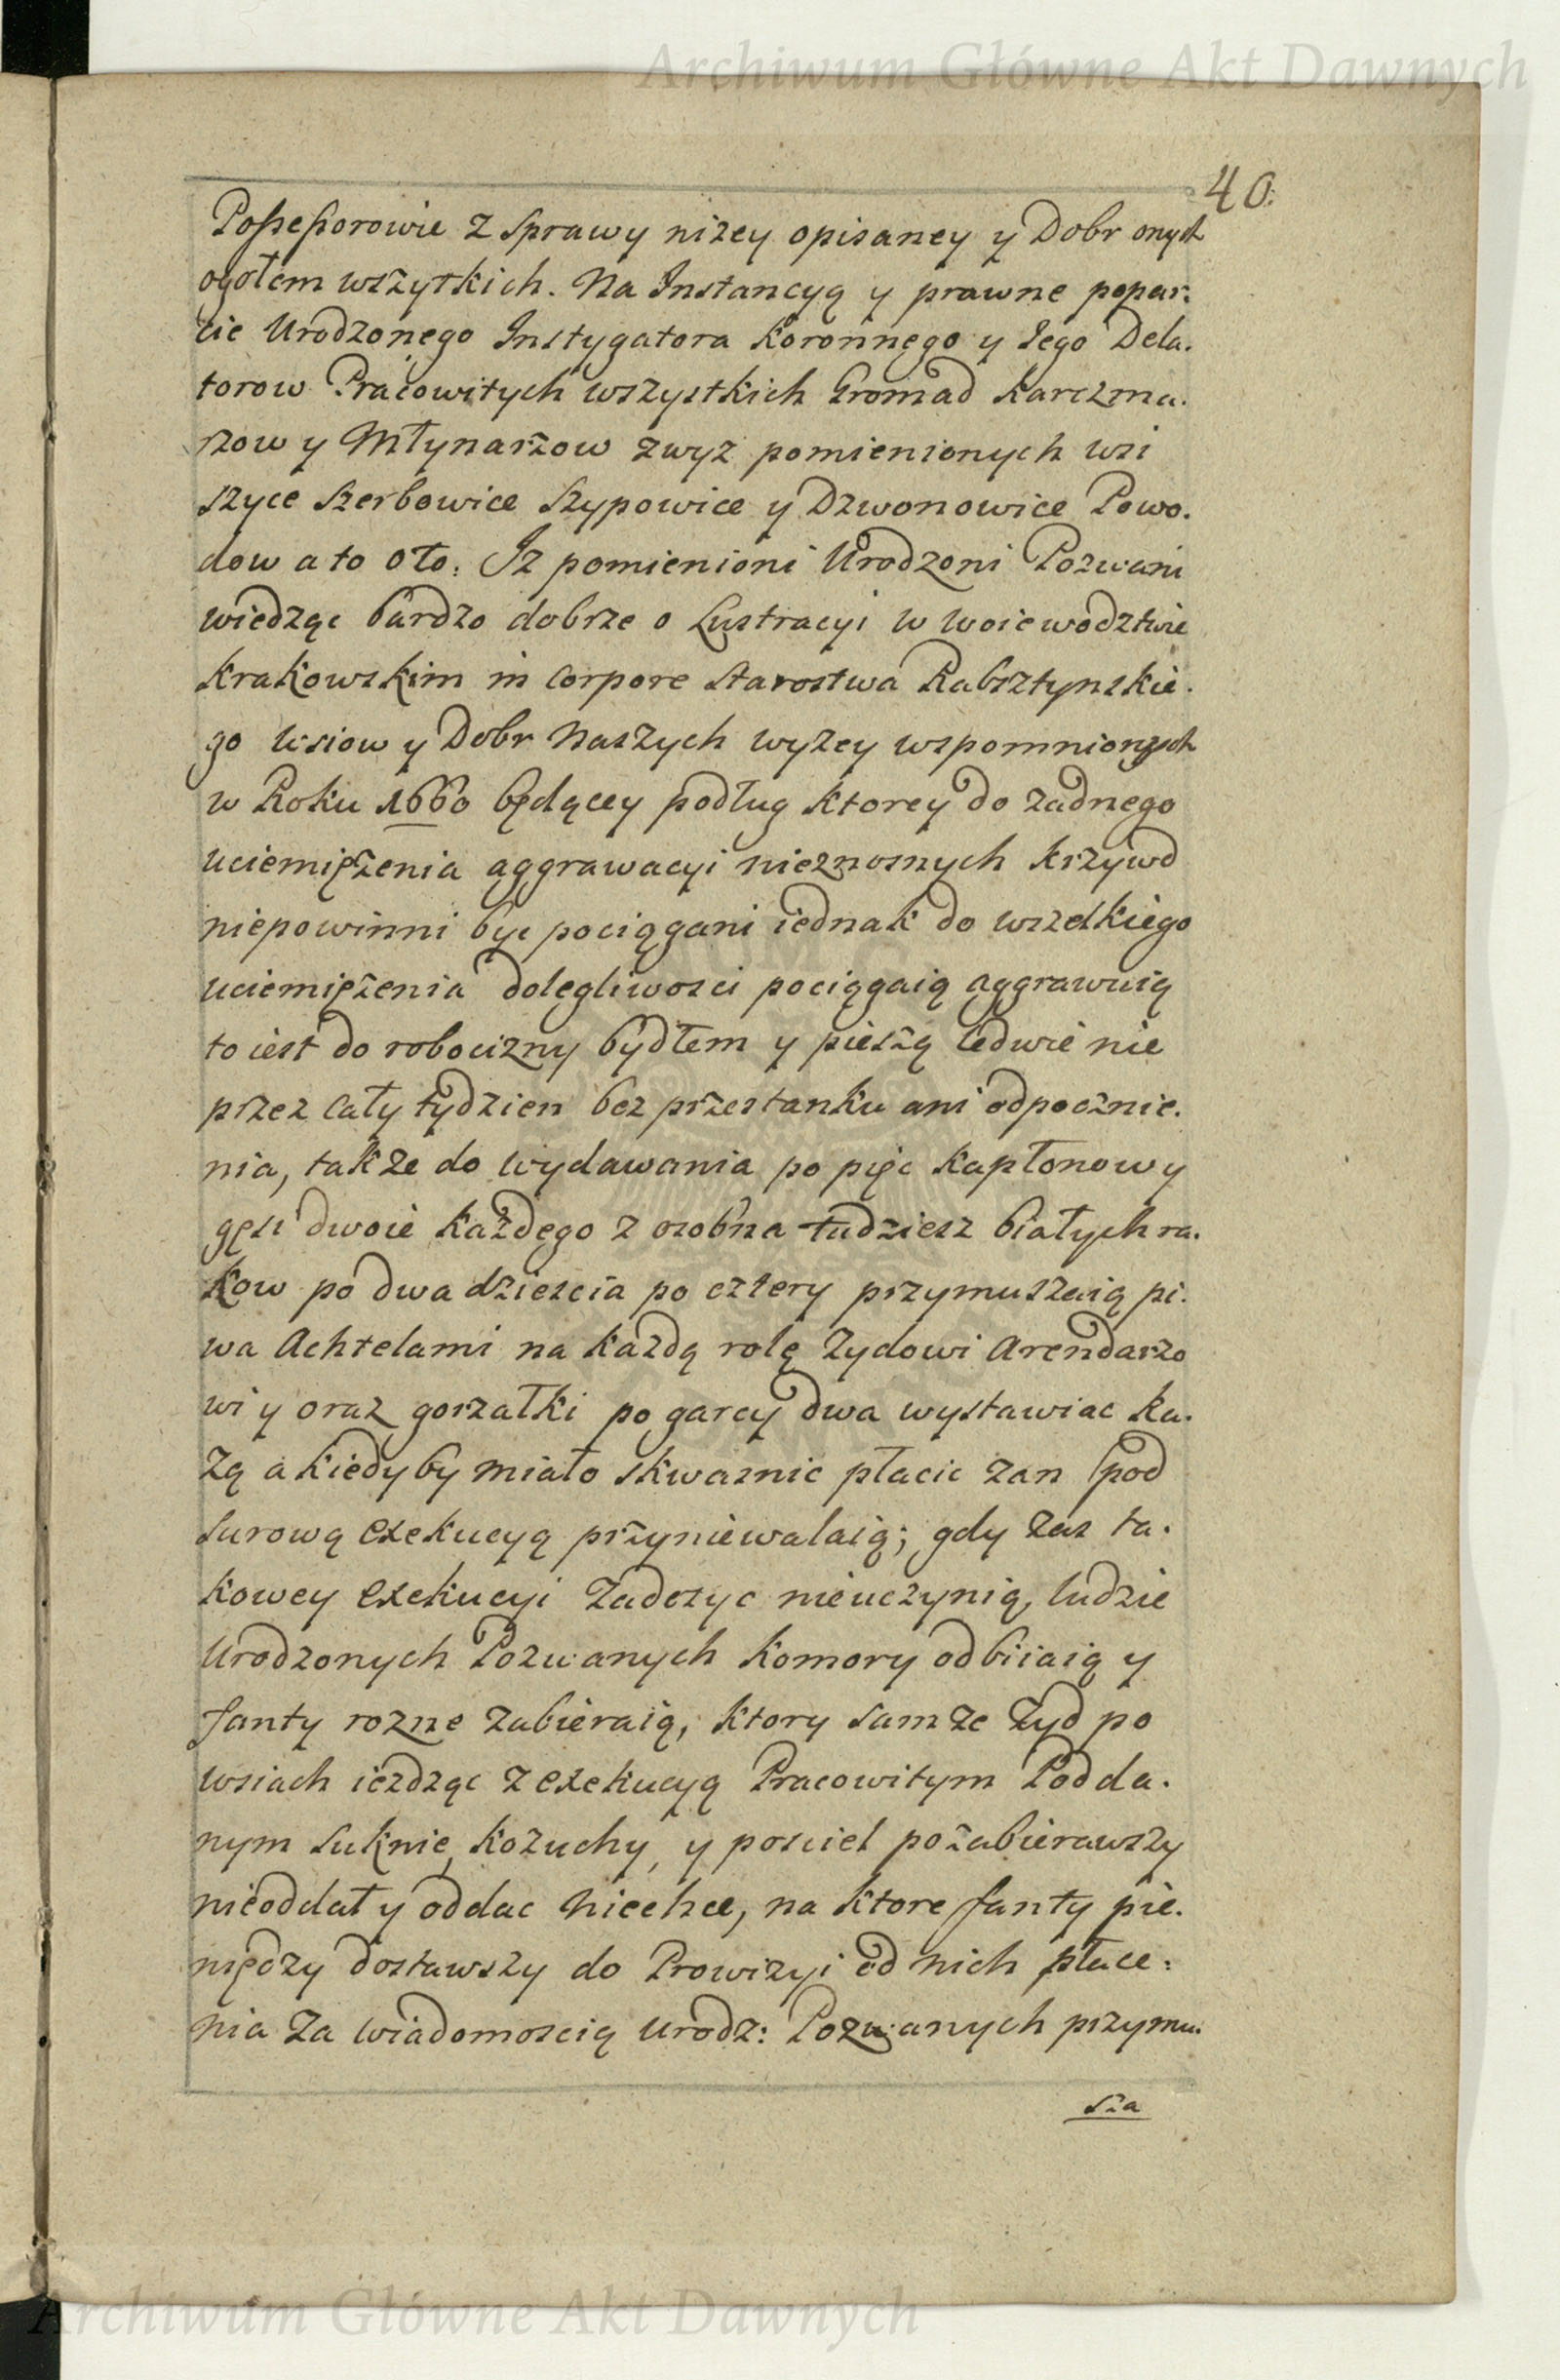 Archiwum Główne Akt Dawnych
40.
Poſseſsorowie z sprawy niżey opisaney y Dobr onych
ogołem wszytkich. Na Instancyą y prawne popar.
cie Urodzonego Instygatora Koronnego y Jego Dela.
torow Pracowitych wszystkich Gromad Karczma.
rzow y Młynarzow zwyz pomienionych wsi
szyce Szerbowice Szypowice y Dzwonowice Powo.
dow a to oto: Jz pomienioni Urodzoni Pozwani
wiedząc bardzo dobrze o Lustracyi w woiewodztwie
Krakowskim in Corpore Starostwa Rabsztynskie.
go Wsiow y Dobr Naszych wyzey wspomnionych
w Roku 1660 będącey podług Ktorey do zadnego
uciemięzenia aggrawacyi nieznosnych krzywd
niepowinni byc pociągani iednak do wszelkiego
uciemięzenia dolegliwosci pociągaią aggrawuią
to iest do robocizny bydłem y pieszą ledwie nie
przez Cały tydzien bez przestanku ani odpocznie.
nia, takze do wydawania po pięc Kapłonow y
gęsi dwoie Każdego z osobna tudziesz białych ra.
Kow po dwadziescia po cztery przymuszaią pi.
wa Achtelami na Kazdą rolę Zydowi Arendarzo
wi y oraz gorzałki po garcy dwa wystawiac ka.
zą a Kiedy by miało skwasnic płacic zan pod
surową Exekucyą przyniewalaią; gdy zas ta.
Kowey Exekucyi Zadosyc nieuczynią, ludzie
Urodzonych Pozwanych Komory odbiiaią y
fanty rozne zabieraią, Ktory samze Zyd po
wsiach iezdząc z Exekucyą Pracowitym Podda.
nym suknie, Kozuchy, y posciel pozabierawszy
nieoddał y oddac niechce, na Ktore fanty pie.
niędzy dostawszy do Prowizyi od nich płace:
nia za wiadomoscią Urodz: Pozwanych przymu.
sza
Archiwum Główne Akt Dawnych